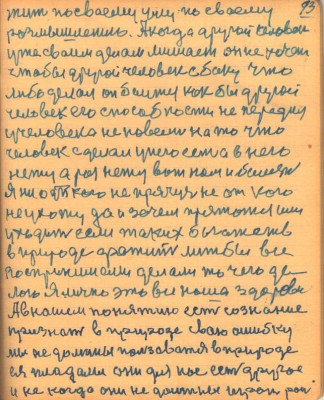 93
жит по своему уму по своему
розмышлению. А когда другой человек
уже своим делом мешает он не хочет
чтобы другой человек сбоку что
либо делал он болит как бы другой
человек его способности не передня
у человека не повеси на то что
человек сделал у него есть а в него
нету а роз нету вот нам и болеет
Я ни от кого не прячуся не от кого
не ухожу да и зачем прятатся или
уходить если таких бы людей
в природе
воспринимали делали то чего де
лаю Я лично это вы наше здоровя
А в нашем понятию есть сознание
признать в природе свою ошибку
мы не должны ползоватя в природе
ея плодами они для нас есть другое
и не когда они не должны играт рол.